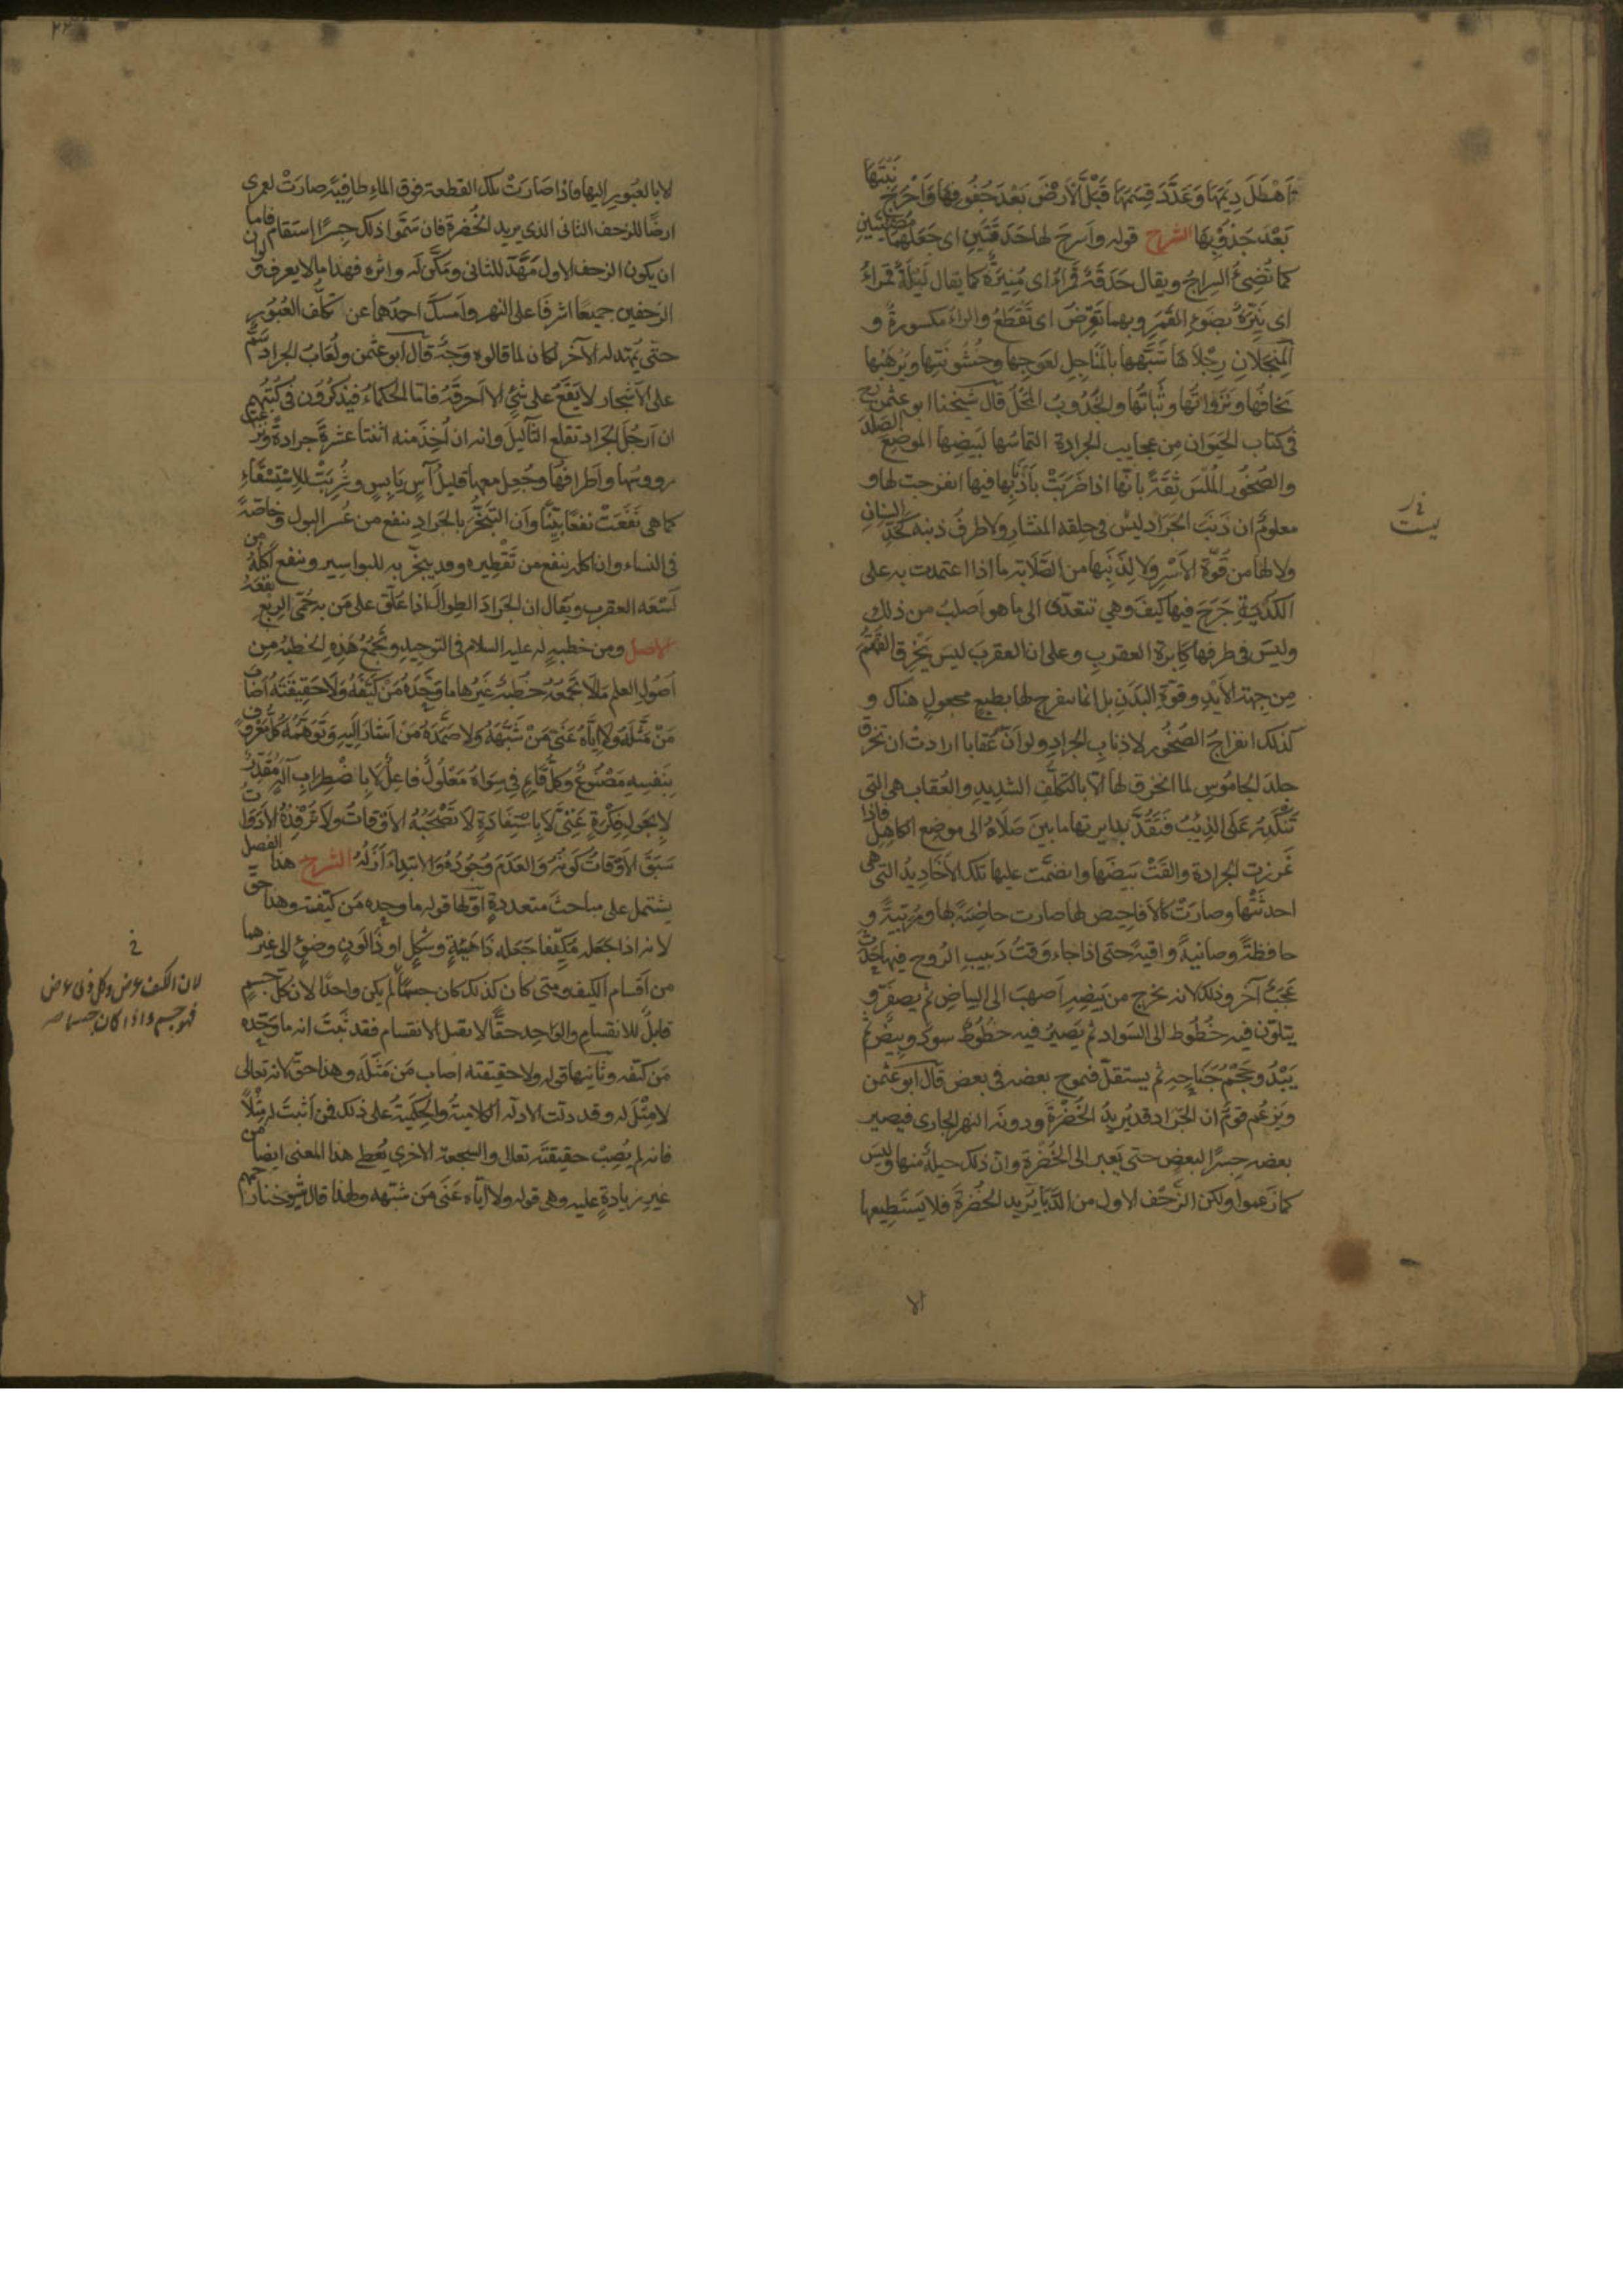 اَهْطَلَ دِيَمَهَا وَعَدَّدَ قِسَمَهَا فَبَلَّ الْاَرْضَ بَعْدَ جُفُوفِهَا وَاَخْرَجَ نَبْتَهَا
بَعْدَ جُدُوْبِهَا الشرح قوله واَسرجَ لها حَدَقَتَينِ اى جَعَلهما مُضِيئتَينِ
كما تُضِىءُ السِراجُ ويقال حَدَقَةٌ قَمْراءُ اى مُنِيرَةٌ كما يقال لَيْلَةٌ قمراءُ
اى نَيِّرَةٌ بضَوءِ القَمَرِ وبهما تَقرِضُ اى تَقْطَعُ والراءُ مكسورةٌ و
المِنجَلانِ رِجْلاَ ها شَبَّهها بالمَناجِلِ لعَوجِها وخُشُونَتِها ويَرْهَبُها
يَخافُها ونَزَواتُها وثَباتُها والجُدُوبُ المَحْلُ قال شيخنا ابو عثمن رح
فى كتاب الحَيَوَانِ مِن عجايب الجرادة التماسُها لبَيضِها الموضعَ الصَلْدَ
والصُخُورَ المُلْسَ ثِقَةً بانّها اذا ضَرَبَتْ باَذْنَابِها فيها انفرجت لها و
معلومٌ ان ذَنَبَ الجَرَادِ ليسَ فى خلقة المنشار ولا طرفُ ذنبه كَحَدِّ السِنانِ
ولا لها من قُوّةِ الاَسْرِ ولا لِذَنَبِها من الصَّلَابَةِ ما اذا اعتمدت به على
الكُدْيَةِ جَرَحَ فيها كيفَ وهى تتعدّى الى ما هو اَصلبُ من ذلك
وليسَ فى طرفها كاِبرَة العقربِ وعلى ان العقربَ ليسَ يَخْرِقُ القُمْقُمَ
مِن جِهَةِ الاَيْدِ وقُوّةِ البَدَنِ بل انما ينفرج لها بطبعٍ مجعولٍ هناك و
كذلك انفراجُ الصُخُورِ لاذنابِ الجرادِ ولو اَنّ عُقابا ارادتْ ان تَخْرِقَ
جلدَ الجامُوسِ لما انخرق لها الاّ بالتكلُّفِ الشديد والعُقاب هى التى
تَنْكَدِرُ عَلَى الذِئْبِ فَتَقُدُّ بدابرتها ما بينَ صَلاهُ الى موضع الكاهِلِ فاذا
غَرزتِ الجرادة والقَتْ بَيضَها وانضمَّت عليها تلك الاَخادِيدُ التى هى
احدثَتْها وصارَتْ كالاَفاحِيصِ لها صارت حاضِنَةً لها ومُرَبِّيَةً و
حافظةً وصاينةً وواقيةً حتى اذا جاءَ وَقتُ دَبيبِ الرُوحِ فيها حَدَثَ
عَجَبٌ آخر وذلك لانه يخرج من بَيضِهِ اَصهبَ الى البياضِ ثم يصفرّ و
يتلوّن فيه خُطُوط الى السَواد ثم يَصِيرُ فيه خطُوطٌ سودٌ وبيضٌ ثم
يَبْدُو حَجْمُ جَنَاحِهِ ثم يستقلّ فيموج بعضه فى بعض قال ابو عثمن
ويَزعُم قومٌ ان الجَرادَ قد يُرِيدُ الخُضْرَةَ ودونَه النهر الجارى فيصير
بعضه جِسرًا لبعضٍ حتى يَعبر الى الخُضْرَةِ وانّ ذلك حيلةٌ منها وليسَ
كما زَعموا ولكن الزَحْف الاول من الدَّبَا يُريد الخُضْرَةَ فلا يَستَطِيعها
الا
لا بالعُبُورِ اليها فاذا صَارَتْ تلك القطعة فوق الماءِ طافِيَةً صارَتْ لعمرى
ارضًا للزحف الثانى الذى يريد الخُضرة فان سَمَّوا ذلك جِسرًا استقام فاما
ان يكونَ الزحف الاول مَهَّدَ للثانى ومَكَّنَ له واثره فهذا ما لا يعرف ولو ان
الزحفين جميعًا اشرفَا على النهر واَمسكَ احدُهما عن تكلّف العُبُورِ
حتّى يُمهّد له الآخر لكان لما قالوه وَجْهٌ قال ابو عثمن ولُعَابُ الجراد سَمٌّ
على الاَشجار لا يَقَعُ على شَىْءٍ الاّ اَحرقَهُ فاما الحكماءُ فيذكرُون فى كُتُبِهِم
ان اَرجُلَ الجَرادِ تقلع الثآليلَ وانه ان اُخِذَ منه اثنتا عشرةَ جرادةً ونُزِعَتْ
رووسُها واَطرافُها وجُعِل معها قليلُ آسٍ يَابِسٍ وشُرِبَتْ للاِسْتِسْقَاءِ
كما هى نَفَعَتْ نفعًا بَيِّنًا واَن التَبَخُّرَ بالجَرادِ ينفع من عُسر البول وخَاصّةً
فى النساء وان اكله ينفع من تَقْطِيره وقد يبخَّر به للبواسِيرِ وينفع اَكلُهُ من
لَسْعَة العقرب ويُقال ان الجَرادَ الطِوالَ اذا عُلّق على مَن به حُمّى الرِبعِ نفعَهُ
الاصل ومن خطبةٍ له عليه السلام فى التوحِيدِ وتَجْمَعُ هَذِهِ الخطبة مِن
اُصُولِ العلمِ مَا لَا تَجمَعُهُ خُطْبَةٌ غَيْرُها مَا وَحَّدَهُ مَنْ كَيَّفَهُ وَلَا حَقِيقَتَهُ اَصَابَ
مَنْ مَثَّلَهُ وَلَا اِيَّاهُ عَنَى مَنْ شَبَّهَهُ وَلَا صَمَدَهُ مَنْ اَشَارَ اِلَيهِ وَتَوَهَّمَهُ كُلُّ مَعْرُوفٍ
بِنَفْسِهِ مَصْنُوعٌ وَكُلُّ قَائِمٍ فِى سِوَاهُ مَعْلُولٌ فَاعِلٌ لَا بِاضْطِرَابِ آلَةٍ مُقَدِّرٌ
لَا بِجَولِ فِكْرَةٍ غَنِىٌّ لَا بِاسْتِفَادَةٍ لَا تَصْحَبُهُ الاَوْقَاتُ وَلَا تَرْفِدُهُ الاَدَوَاتُ
سَبَقَ الاَوْقَاتَ كَونُهُ وَالعَدَمَ وُجُودُهُ وَالاِبْتِدَاءَ اَزَلُهُ الشرح هذا الفصل
يشتمل على مباحثَ متعددةٍ اَوّلها قوله ما وحده مَن كيّفه وهذا حقّ
لانه اذا جَعله مُكيّفًا جَعَله ذَا هَيئَةٍ وشَكلٍ او ذَا لَونٍ وضَوءٍ الى غيرهما
من اَقسام الكيف ومتى كان كذلك كان جسمًا ولم يكن واحدًا لان كلّ جسمٍ
قابلٌ للانقسامِ والوَاحِد حقًّا لا يقبل الانقسام فقد ثَبَتَ انه ما وَحّده
مَن كيّفه وثانيها قوله ولا حقيقته اصاب مَن مَثّلَه وهذا حقّ لانه تعالى
لا مِثْلَ له وقد دلّت الادلّه الكلاميةُ والحِكَمِيّةُ على ذلك فمن اَثبتَ له مِثْلًا
فانه لم يُصِبْ حقيقتَه تعالى والسجعة الاخرى يُعطى هذا المعنى ايضا من
غيرِ زيادةٍ عليه وهى قوله ولا اِيّاه عَنَى مَن شبّهه ولهذا قال شيوخنا
لان الكيف عرض وكل ذى عرض
فهو جسم واذا كان جسما